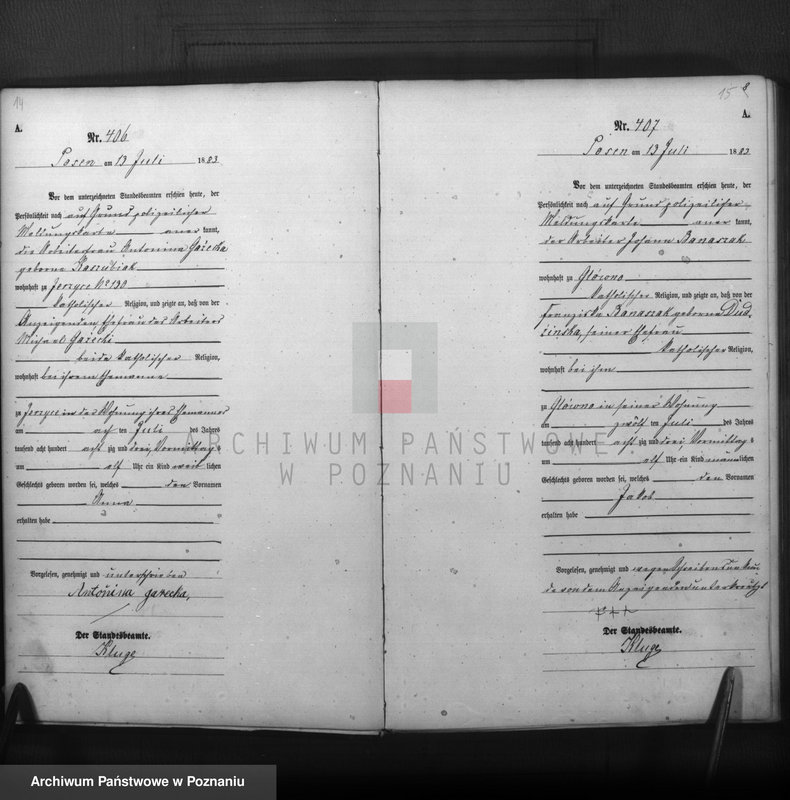 14
A.
Nr. 406
Posen am 13 Juli 1883
Vor dem unterzeichneten Standesbeamten erschien heute, der
Persönlichkeit nach auf Grund polizeilicher
Meldungskarte aner kannt,
die Arbeiterfrau Antonina
geborene Kaszubiak
wohnhaft zu Jerzyce No 130
katholischer Religion, und zeigte an, daß von der
Anzeigenden, Ehefrau des Arbeiters
Michael
beide katholischer Religion,
wohnhaft bei ihrem Ehemanne
zu Jerzyce in der Wohnung ihres Ehemannes
am ach ten Juli des Jahres
tausend acht hundert acht zig und drei, Vormittag s
um elf Uhr ein Kind weib lichen
Geschlechts geboren worden sei, welches den Vornamen
Anna
erhalten habe
Vorgelesen, genehmigt und unterschrieben
Antonina
Der Standesbeamte.
Kluge
15 8
A.
Nr. 407
Posen am 13 Juli 1883
Vor dem unterzeichneten Standesbeamten erschien heute, der
Persönlichkeit nach auf Grund polizeilicher
Meldungskarte aner kannt,
der Arbeiter Johann Banaszak
wohnhaft zu Glówno
katholischer Religion, und zeigte an, daß von der
Franziska Banaszak geborene Dud
zinska, seiner Ehefrau
katholischer Religion,
wohnhaft bei ihm
zu Glówno in seiner Wohnung
am zwölf ten Juli des Jahres
tausend acht hundert acht zig und drei Vormittag s
um elf Uhr ein Kind männ lichen
Geschlechts geboren worden sei, welches den Vornamen
Jakob
erhalten habe
Vorgelesen, genehmigt und wegen Schreibensunkun
de von dem Anzeigenden unterkreuzt
+++
Der Standesbeamte.
Kluge
ARCHIWUM PAŃSTWOWE
W POZNANIU
Archiwum Państwowe w Poznaniu